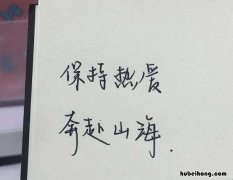 保持热爱
奔赴山海.
hubeihong.com